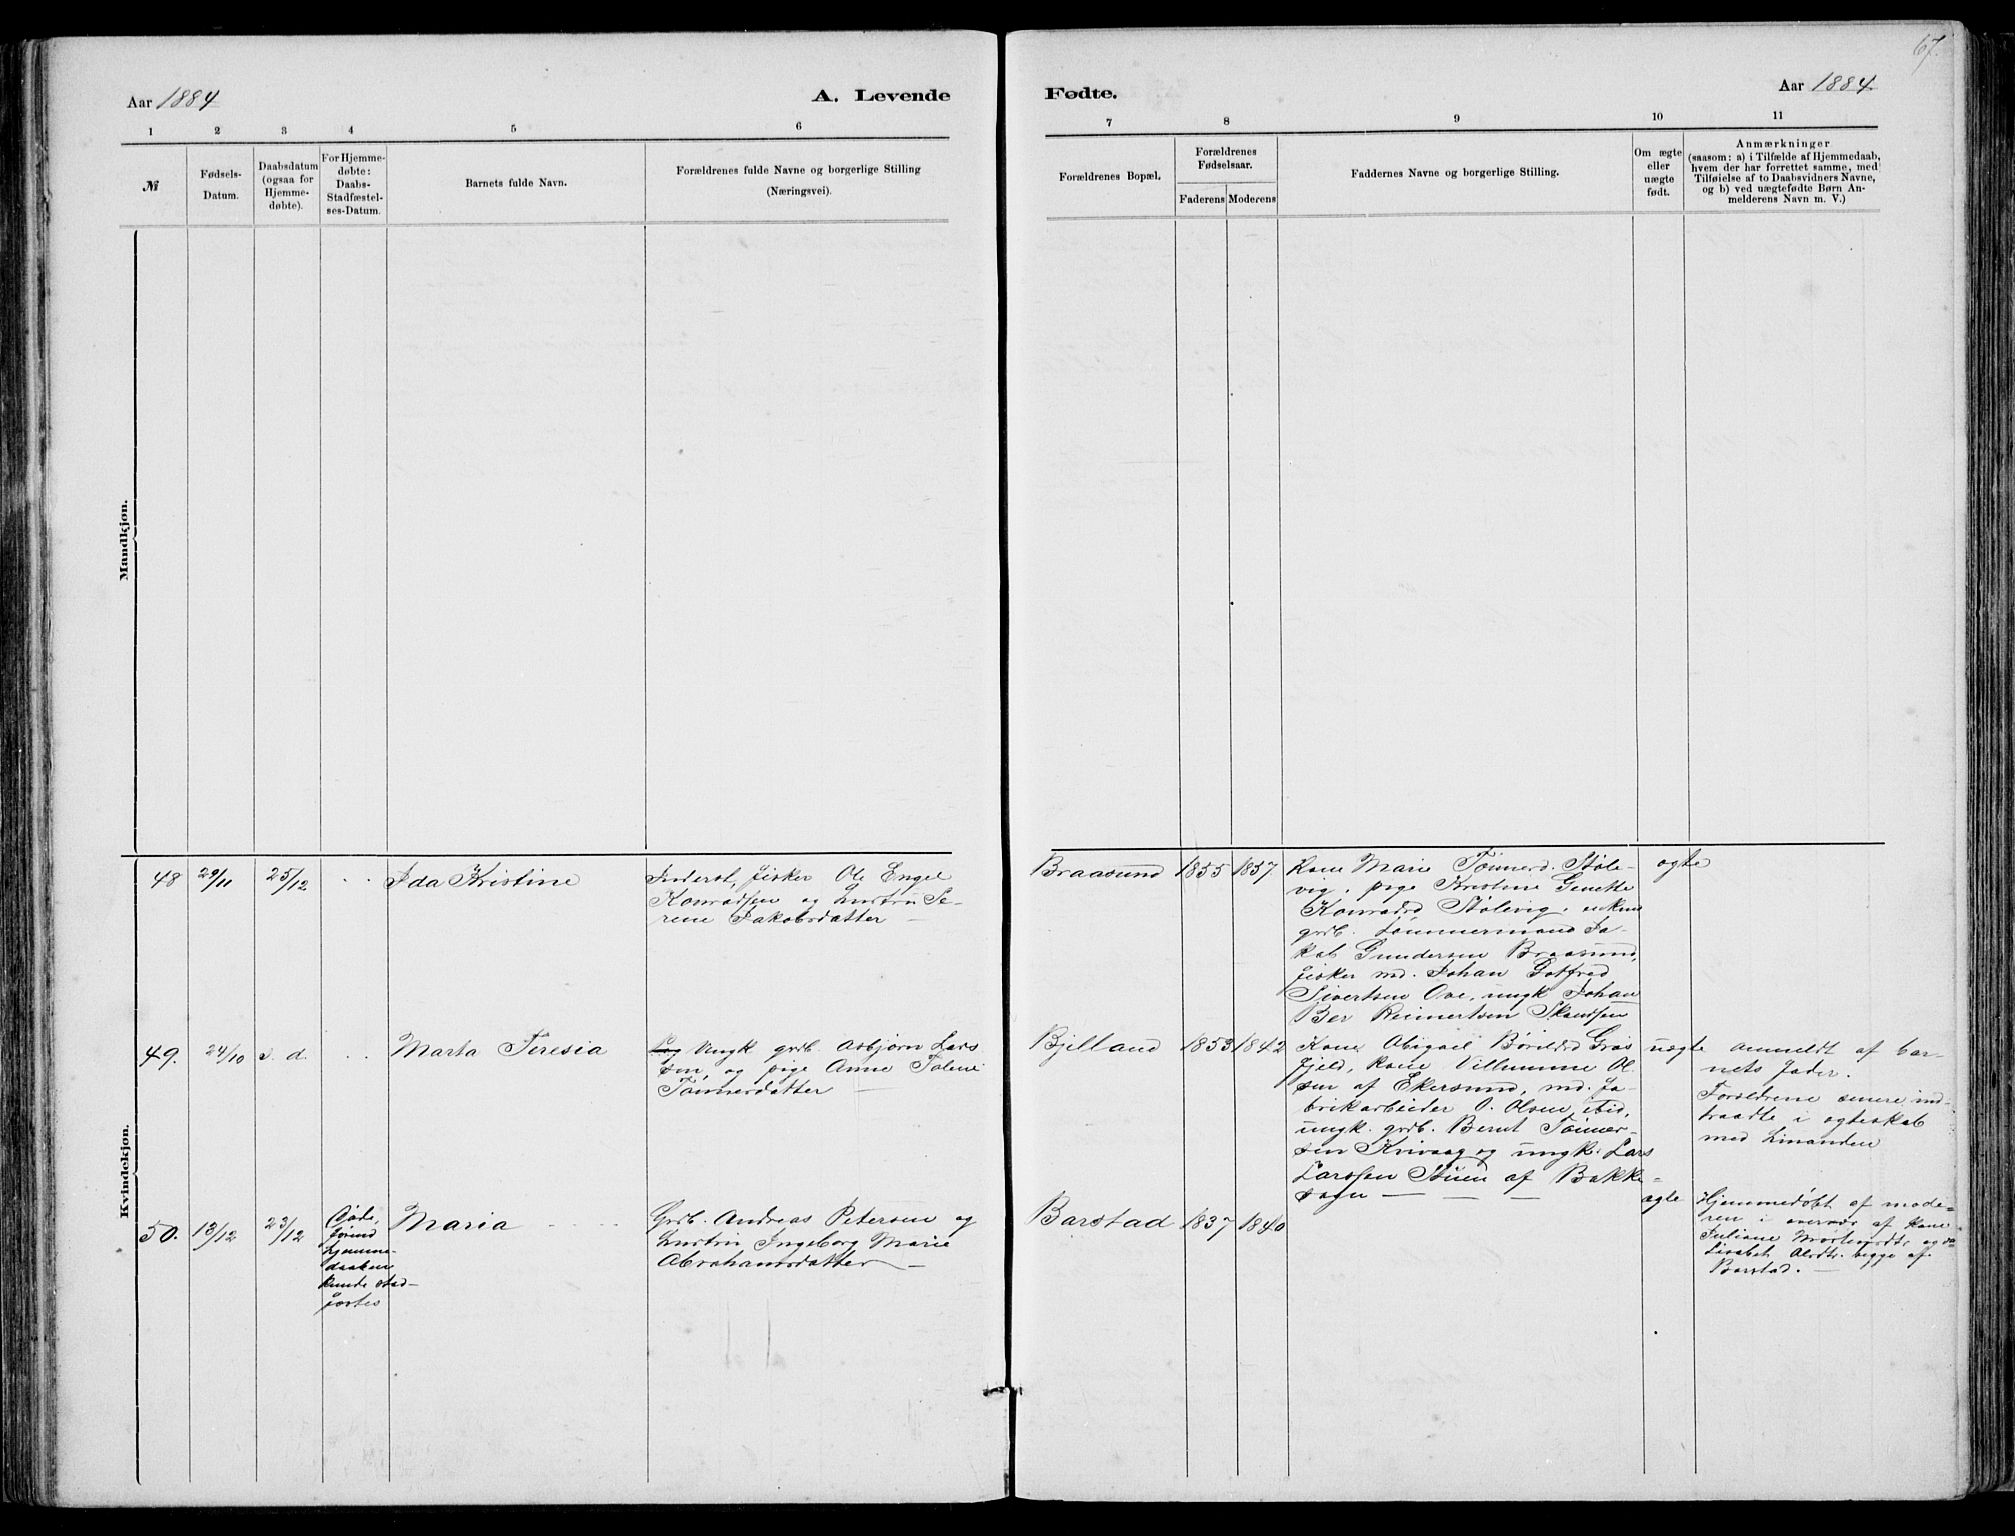 67.
Aar 1884
A. Levende
Fødte.
Aar 1884.
1 2 3 4 5 6
7 8 9 10 11
№
Fødsels-
Datum.
Daabsdatum
(ogsaa for
Hjemme-
døbte).
For Hjemme-
døbte:
Daabs-
Stadfæstel-
ses-Datum.
Barnets fulde Navn.
Forældrenes fulde Navne og borgerlige Stilling
(Næringsvei).
Forældrenes Bopæl.
Forældrenes
Fødselsaar.
Faderens Moderens
Faddernes Navne og borgerlige Stilling.
Om ægte
eller
uægte
født.
Anmærkninger
(saasom: a) i Tilfælde af Hjemmedaab,
hvem der har forrettet samme, med
Tilføielse af to Daabsvidners Navne,
og b) ved uægtefødte Børn An-
melderens Navn m. V.)
Mandkjøn.
Kvindekjøn.
48 29/11 25/12 " Ida Kristine
Inderst, fisker Ole Engel
Konradsen og hustru Se-
rene Jakobsdatter —
Braasund 1855 1857
Kone Marie Tønnerd. Støle-
vig, pige Kristine Genette
Konradsd Stølevig, enkem
grdb. tømmermand Ja-
kob Gundersen Braasund,
fisker md. Johan Gotfred
Sivertsen Ove, ungk Johan
Ber Reinertsen Skandsen
ægte
49. 24/10 s. d. " Marta Teresia
Ungk grdb. Asbjørn Lars
sen, og pige Anne Taline
Tønnesdatter —
Bjelland 1853 1842
Kone Abigail Børildsd Gras
fjeld, kone Villumine Ol-
sen af Ekersund, md. fa-
brikarbeider O. Olsen ibid,
ungk. grdb. Bernt Tønner-
sen Kvivaag og ungk. Lars
Larssen Stuen af Bakke-
sogn — — —
uægte
anmeldt af bar-
nets fader.
Forældrene senere ind-
traadte i ægteskab
med hinanden
50. 13/12 23/12
Døde,
førend
hjemme-
daaben
kunde stad-
fæstes
Maria
Grdb. Andreas Petersen og
hustru Ingeborg Marie
Abrahamsdatter —
Barstad 1837 1840
ægte
Hjemmedøbt af mode-
ren i overvær af kone
Juliane
Lisabet Olsdtr. begge af
Barstad. —